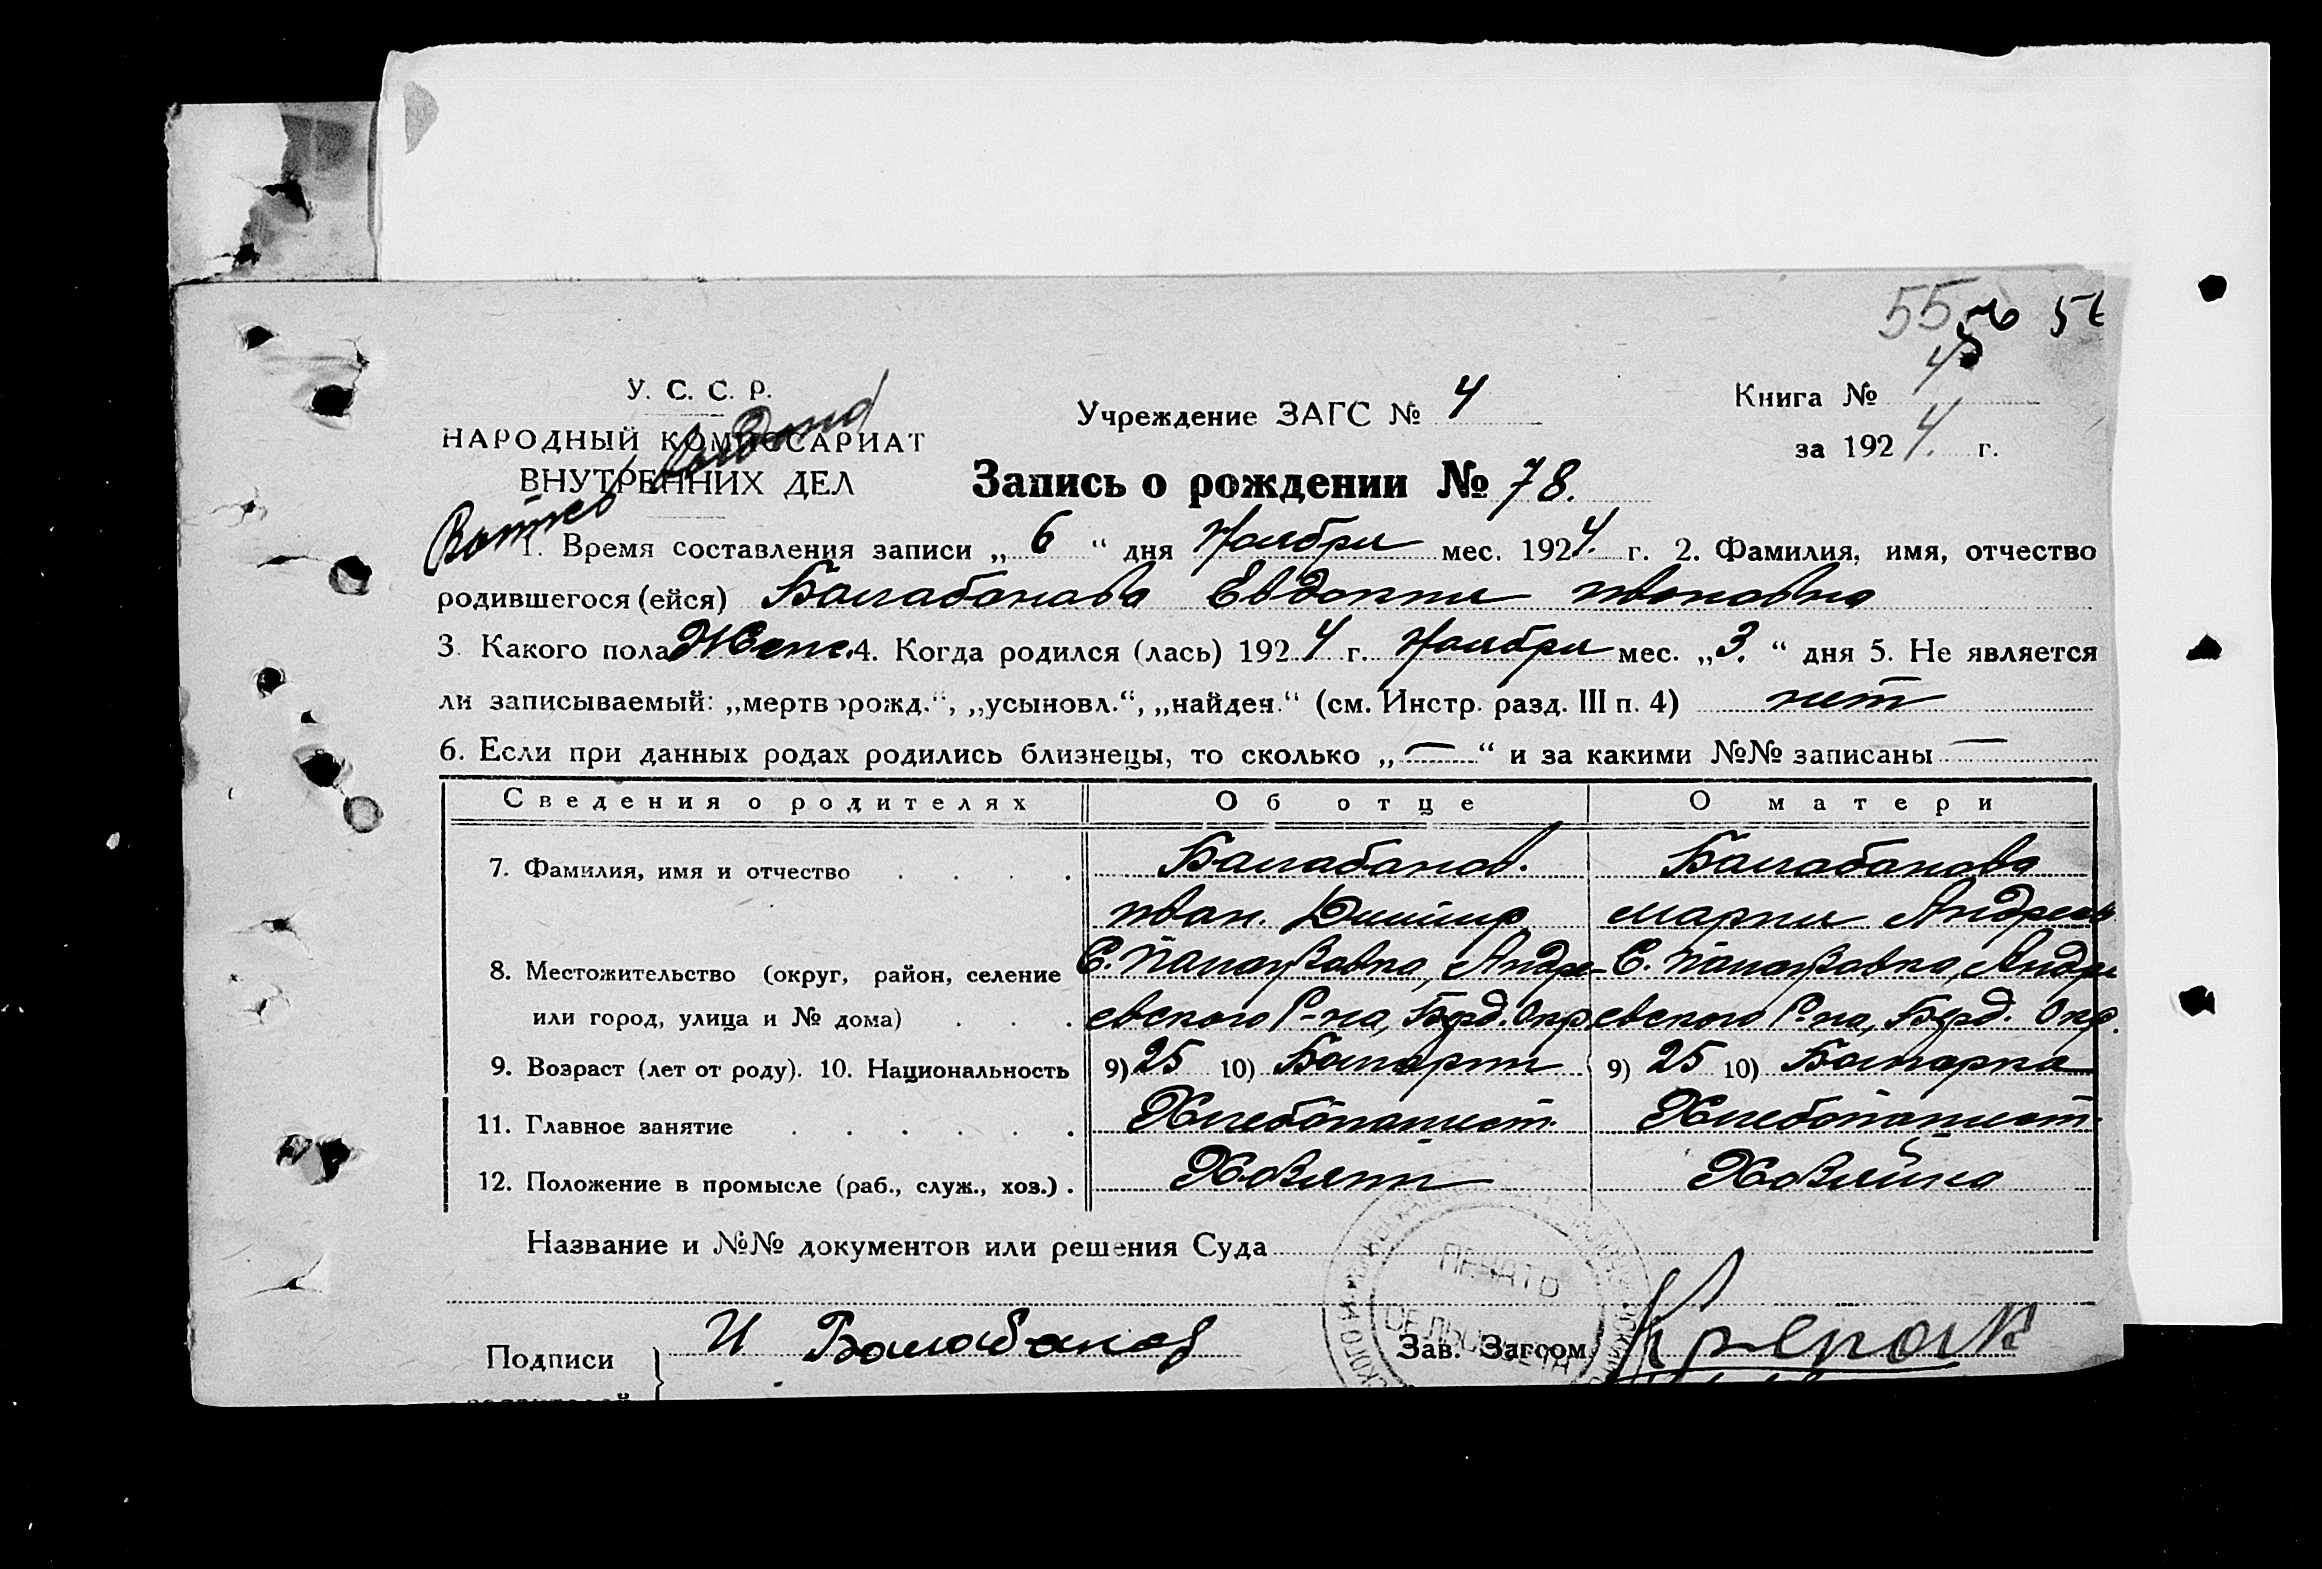 55 56 5
У. С. С. Р.
НАРОДНЫЙ КОМИССАРИАТ
ВНУТРЕННИХ ДЕЛ
Учреждение ЗАГС № 4
Книга № 4
за 1924 г.
Запись о рождении № 78.
1. Время составления записи „ 6 “ дня Ноября мес. 1924. г. 2. Фамилия, имя, отчество
родившегося (ейся) Балабанова Евдокия Ивановна
3. Какого пола Женс. 4. Когда родился (лась) 1924 г. Ноября мес. „ 3. “ дня 5. Не является
ли записываемый: „мертворожд.“, „усыновл.“, „найден.“ (см. Инстр. разд. III п. 4) нет
6. Если при данных родах родились близнецы, то сколько „ — “ и за какими №№ записаны —
Сведения о родителях Об отце О матери
7. Фамилия, имя и отчество Балабанов. Балабанова
Иван. Димитр Мария Андреев
8. Местожительство (округ, район, селение С. Палаузовка, Андре- С. Палаузовка, Андре
или город, улица и № дома) евского Р-на, Берд. Окр. евского Р-на, Берд. Окр.
9. Возраст (лет от роду). 10. Национальность 9) 25 10) Болгарин 9) 25 10) Болгарка
11. Главное занятие Хлебопашест. Хлебопашест.
12. Положение в промысле (раб., служ., хоз.) Хозяин Хозяйка
Название и №№ документов или решения Суда
ПЕЧАТЬ
СЕЛЬСОВЕТА
Подписи И Балабанов Зав. Загсом